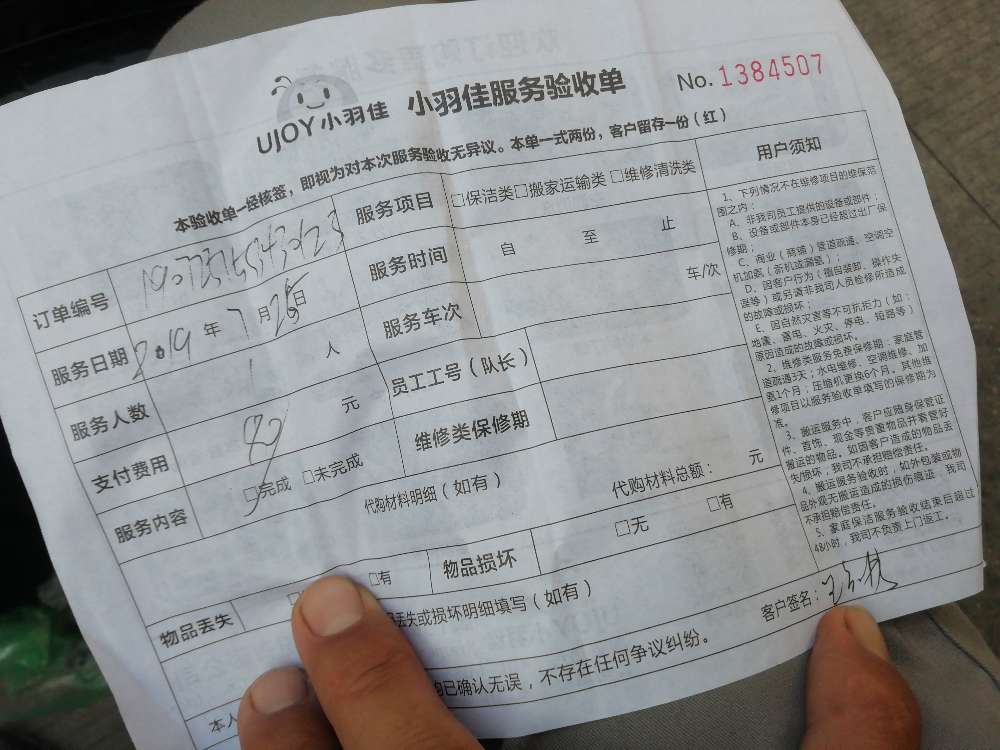 UJOY小羽佳 小羽佳服务验收单 No. 1384507
本验收单一经核签，即视为对本次服务验收无异议。本单一式两份，客户留存一份（红）
订单编号
服务项目 □保洁类□搬家运输类 □维修清洗类
服务日期 2019 年 7 月 25 日
服务时间 自 至 止
服务人数 1 人
服务车次 车/次
支付费用 元
员工工号（队长）
服务内容 □完成 □未完成
维修类保修期
代购材料明细（如有）
代购材料总额： 元
物品丢失 □有
物品损坏 □无 □有
丢失或损坏明细填写（如有）
本人 已确认无误，不存在任何争议纠纷。
客户签名：
用户须知
1、下列情况不在维修项目的维保范
围之内：
A、非我司员工提供的设备或部件；
B、设备或部件本身已经超过出厂保
修期；
C、商业（商铺）管道疏通、空调空
机加氨（新机或漏氨）；
D、因客户行为（擅自装卸、操作失
误等）或另请非我司人员检修所造成
的故障或损坏；
E、因自然灾害等不可抗拒力（如：
地震、雷电、火灾、停电、短路等）
原因造成的故障或损坏。
2、维修类服务免费保修期：家庭管
道疏通3天；水电维修、空调维修、加
氨1个月；压缩机更换6个月。其他维
修项目以服务验收单填写的保修期为
准。
3、搬运服务中，客户应随身保管证
件、首饰、现金等贵重物品并看管好
搬运的物品。如因客户造成的物品丢
失/损坏，我司不承担赔偿责任。
4、搬运服务验收时，如外包装或物
品外观无搬运造成的损伤痕迹，我司
不承担赔偿责任。
5、家庭保洁服务验收结束后超过
48小时，我司不负责上门返工。